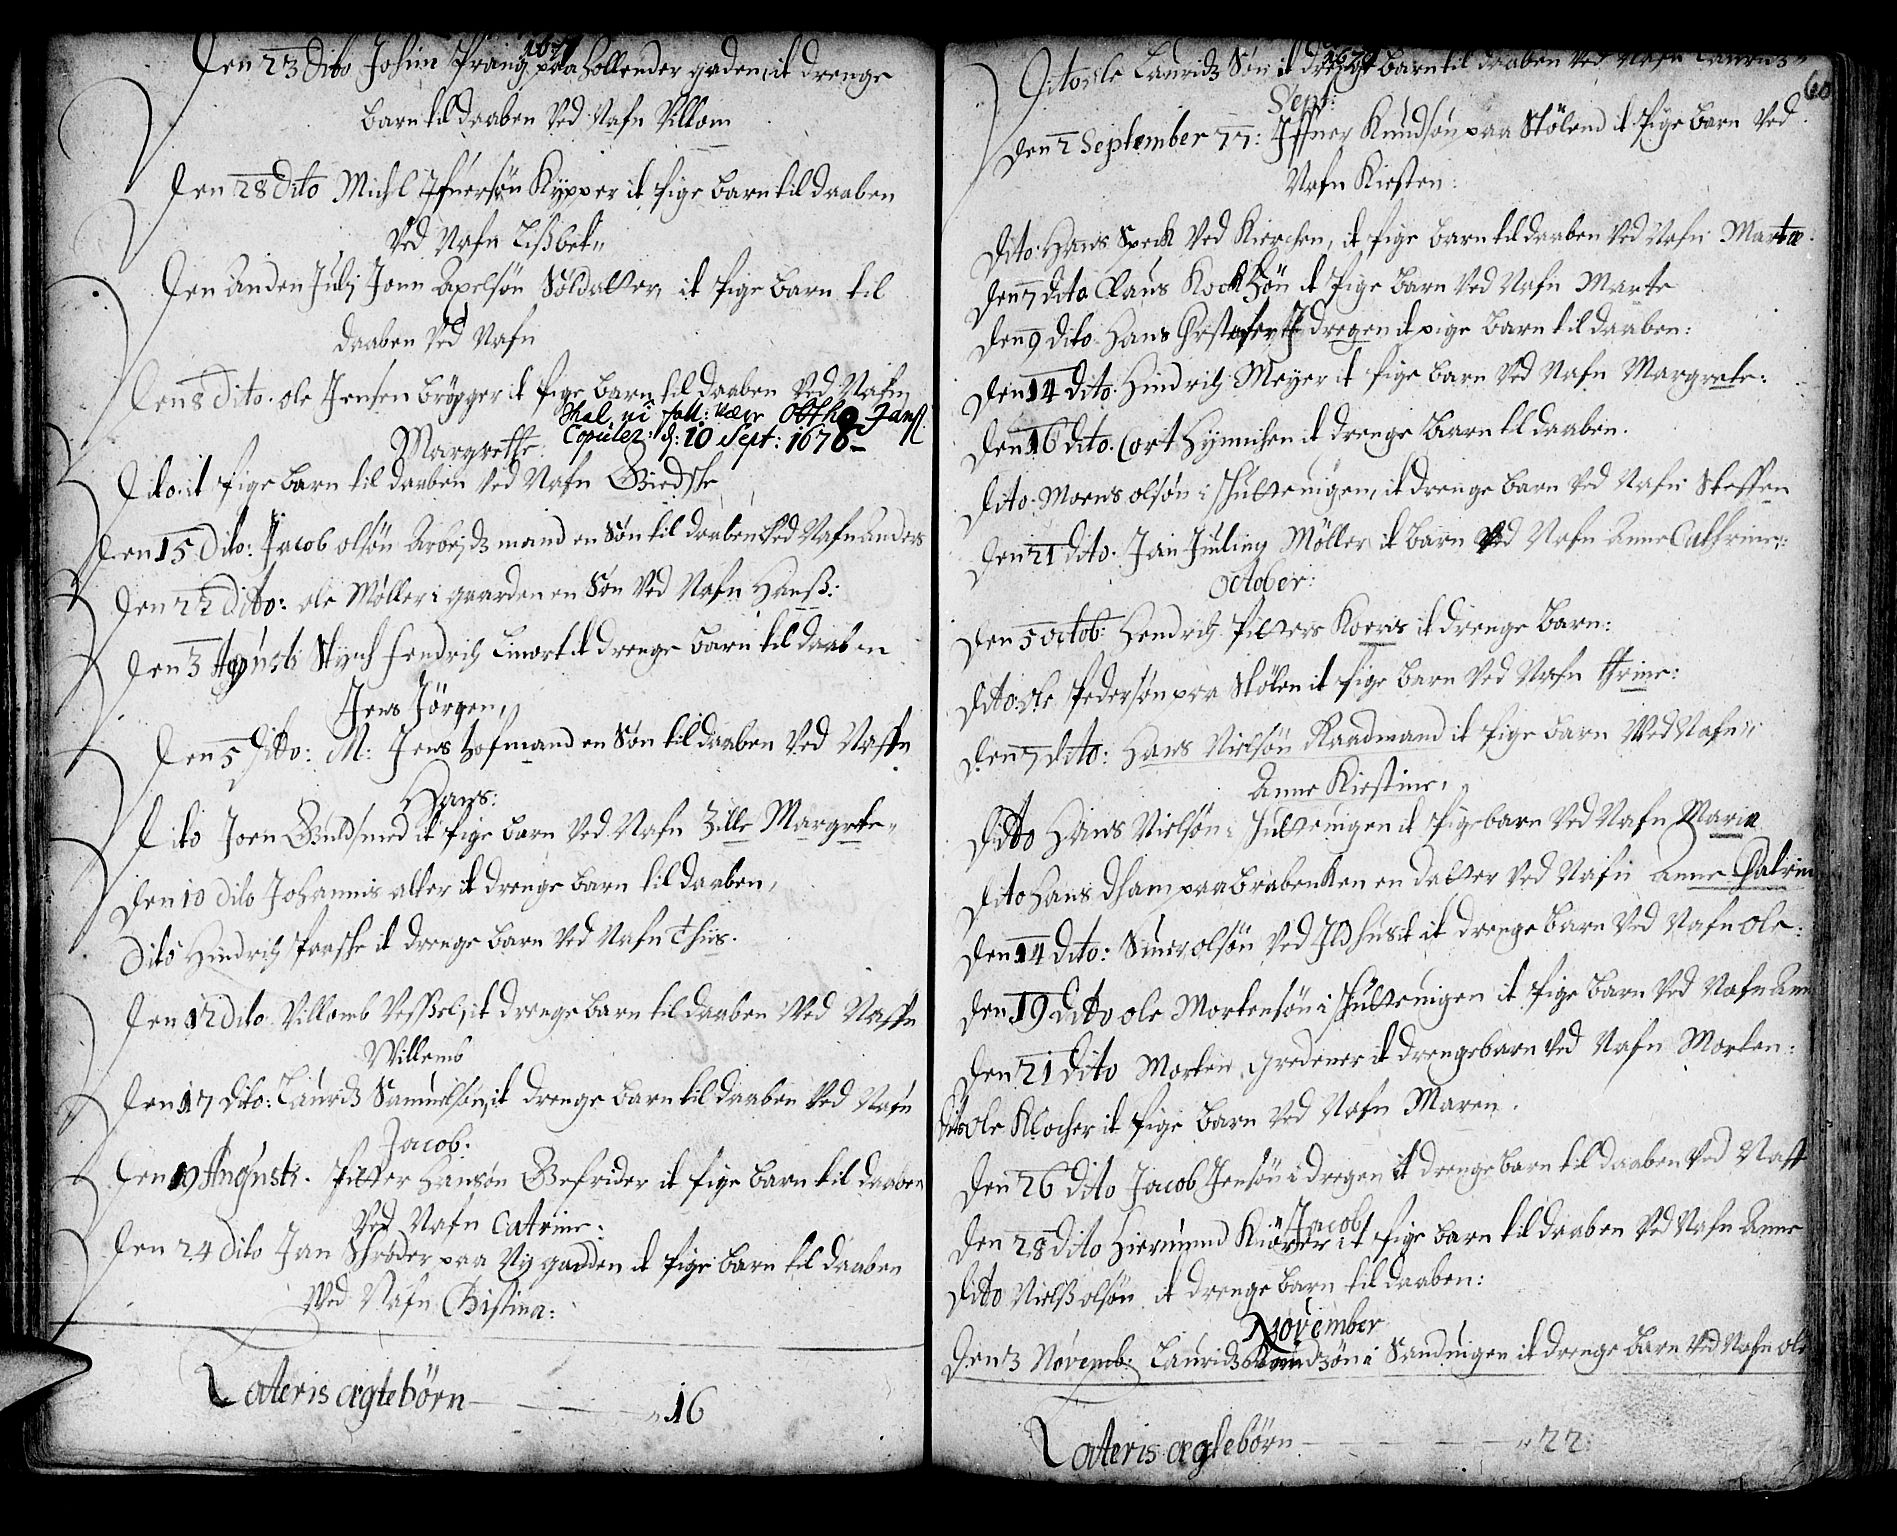 1677
Den 23 Dito Johim Prang paa Hollender gaden, it drenge
barn til daaben Ved Nafn Villom
Den 28 Dito Michl Ifuersøn Kypper it Pige barn til daaben
Ved Nafn Lißbet
Den Anden Julj Jonn Axelsøn Soldatter it Pige barn til
daaben Ved Nafn
Den 8 Dito. ole Jensen brÿgger it Pige barn til daaben Ved Nafn
Margrette. Copulez: d: 10 Sept: 1678
Dito. it Pige barn til daaben Ved Nafn Giedske
Den 15 Dito: Jacob olsøn Arbejdz mand en Søn til daaben Ved Nafn Anders
Den 22 Dito: ole Møller i gaarden en Søn Ved Nafn Hanß:
Den 3 Agusti Stÿch Fendrich it drenge barn til daaben
Jens Jörgen,
Den 5 Dito: M: Jens Hofmand en Søn til daaben Ved Naffn
Hans:
Dito Joen Guldsmed it Pige barn Ved Nafn Zille Margrete
Den 10 Dito Johannis alter it drenge barn til daaben,
Dito Hindrich Paaske it drenge barn Ved Nafn Thiis.
Den 12 Dito Villomb Veßel, it drenge barn til daaben Ved Naffn
Willemb
Den 17 Dito: Lauridz Samuelsøn, it drenge barn til daaben Ved Nafn
Jacob.
Den 19 Augusti. Pitter Hansøn Gefrider it Pige barn til daaben
Ved Nafn Catrine:
Den 24 Dito Jan Schrøder paa Nÿ gaden it Pige barn til daaben
Ved Nafn Christina:
Lateris ægtebørn 16
1677
60
Dito ole Lauridz Søn it drenge barn til daaben Ved Nafn Lauridz
Sept:
Den 2 September 77: Iffuer Knudsøn paa Stølend it Pige barn Ved
Nafn Kirsten:
Dito: Hans Speck Ved Kiercken, it Pige barn til daaben Ved Nafn Marta.
Den 7 dito Claus Kock Søn it Pige barn Ved Nafn Marte
Den 9 Dito Hans i dregen it pige barn til daaben:
Den 14 Dito. Hindrich Meyer it Pige barn Ved Nafn Margrete:
Den 16 Dito. Cort Hÿnnichen it drenge Barn til daaben.
Dito: Moens olsøn i skuttevigen, it drenge barn Ved Nafn Steffen
Den 21 Dito. Jan Juling Möller it barn Ved Nafn Anne Cathrine:
October:
Den 5 octob: Hendrich Pitters Koeris it drenge barn:
Dito. ole Pedersøn paa Stølen it Pige barn Ved Nafn Trine:
Den 7 Dito: Hans Nielsøn Raadmand it Pige barn Ved Nafn
Anne Kirstine,
Dito Hans Nielsøn i skuttevigen it Pige barn Ved Nafn Maria
Dito Hans Dham paa brabencken en datter Ved Nafn Anne Catrin
Den 14 Dito: Siuer olsøn Ved Ild huset it drenge barn Ved Nafn ole:
Den 19 Dito ole Mortensøn i skuttevigen it Pige barn Ved Nafn Ann
Den 21 Dito Morten Gredener it drengebarn Ved Nafn Morten:
Dito ole Klocker it Pige barn Ved Nafn Maren.
Den 26 Dito Jacob Jensøn i dregen it drenge barn til daaben Ved Naff
Jacob
Den 28 Dito Hiermund Kiörner it Pige barn til daaben Ved Nafn Anne
Dito Nielß olsøn it drenge barn til daaben:
November
Den 3 Novemb: Lauridz Knudzøn i Sandvigen it drenge barn Ved Nafn ole
Lateris ægtebørn 22